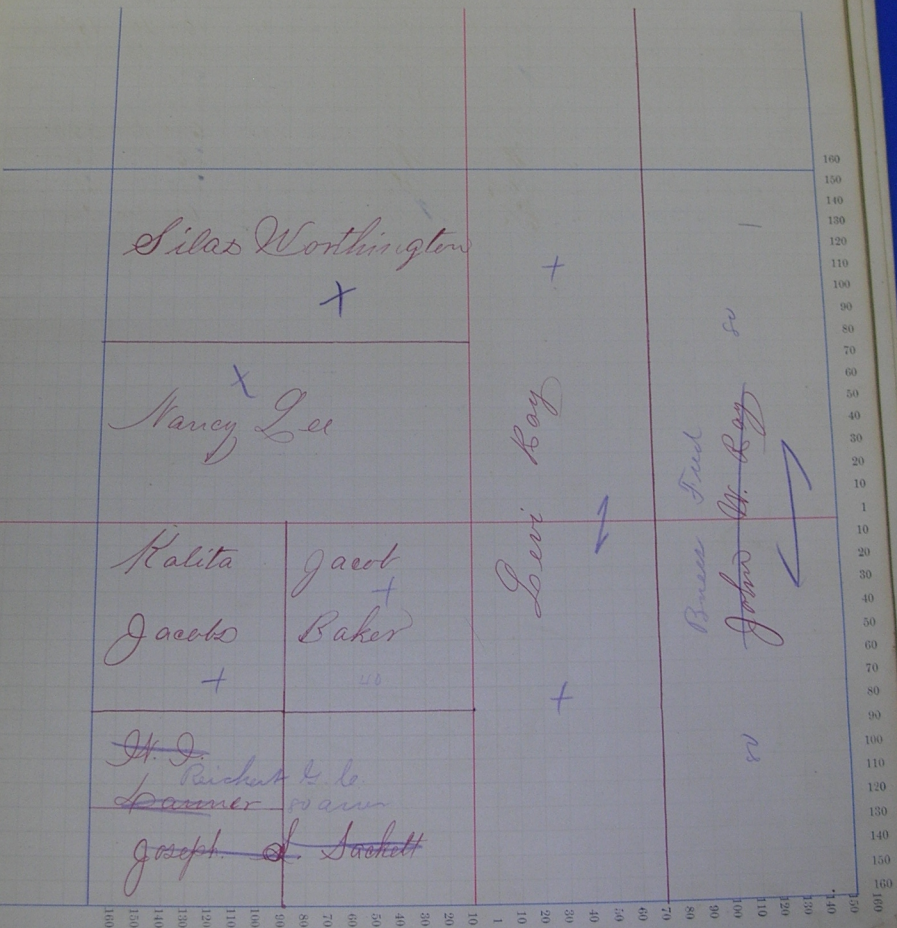 Silas Worthington
X
X
Nancy Lee
Kalita
Jacobs
+
Jacob
+
Baker
40
H. I.
Reichert & Co
Lanner 80 acres
Joseph S. Sackett
+
Levi Ray
+
Fred
80
John W. Ray
80
160
150
140
130
120
110
100
90
80
70
60
50
40
30
20
10
1
10
20
30
40
50
60
70
80
90
100
110
120
130
140
150
160
160 150 140 130 120 110 100 90 80 70 60 50 40 30 20 10 1 10 20 30 40 50 60 70 80 90 100 110 120 130 140 150 160